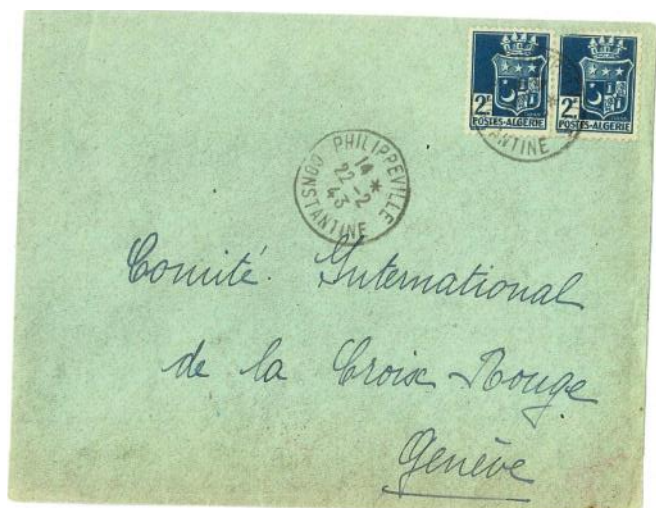 2F
POSTES-ALGERIE
2F
POSTES-ALGERIE
ANTINE
PHILIPPEVILLE
14 *
22 -2
43
CONSTANTINE
Comité International
de la Croix-Rouge
Genève